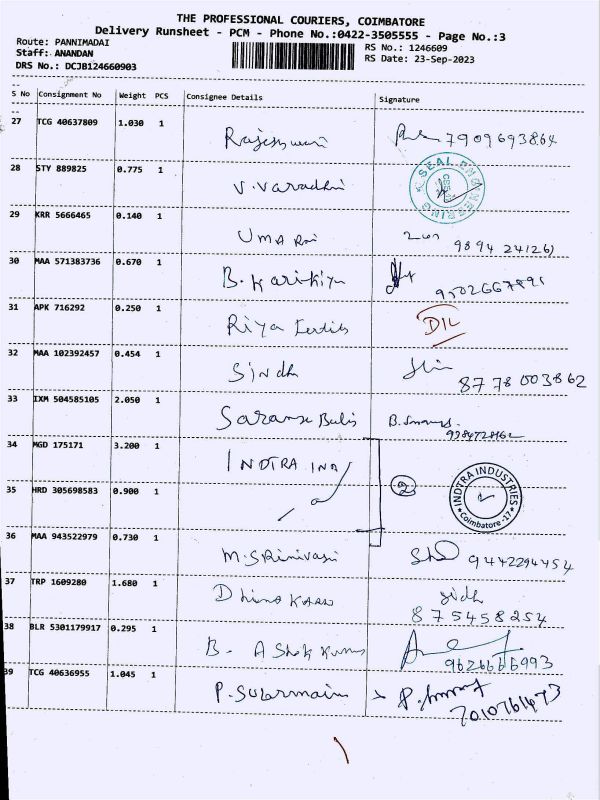 THE PROFESSIONAL COURIERS, COIMBATORE
Delivery Runsheet - PCM - Phone No.:0422-3505555 - Page No.:3
Route: PANNIMADAI
RS No.: 1246609
Staff: ANANDAN
RS Date: 23-Sep-2023
DRS No.: DCJB124660903
S No Consignment No Weight PCS Consignee Details Signature
27 TCG 40637809 1.030 1 Rajeshwari 7909693864
28 STY 889825 0.775 1 V. Varadhi
29 KRR 5666465 0.140 1 UMA Rai
30 MAA 571383736 0.670 1 B. Karikiyu
31 APK 716292 0.250 1 Riya DIL
32 MAA 102392457 0.454 1 Sindh 8778003862
33 IXM 504585105 2.050 1 Sarans
34 MGD 175171 3.200 1 INDTRA IND
2
INDTRA INDUSTRIES Coimbatore -17
35 HRD 305698583 0.900 1
36 MAA 943522979 0.730 1 M. SRinivasi 9442294454
37 TRP 1609280 1.680 1 Sidh
875458254
38 BLR 5301179917 0.295 1 B. AShok Kumar
9626666993
39 TCG 40636955 1.045 1 P.
7010761473